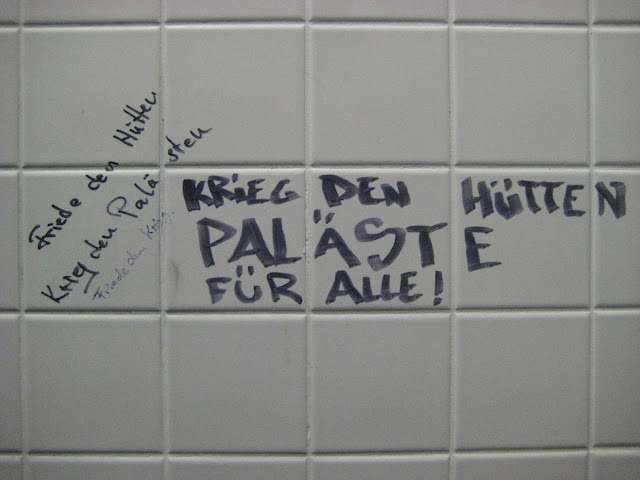 Friede den Hütten
Krieg den Palästen
Friede dem Krieg.
KRIEG DEN HÜTTEN
PALÄSTE
FÜR ALLE!